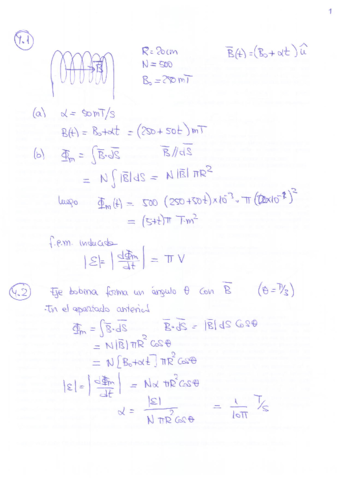 1
4.1
R = 20 cm
N = 500
B₀ = 250 mT
B̄(t) = (B₀ + αt) û
B̄
(a) α = 50 mT/s
B(t) = B₀ + αt = (250 + 50t) mT
(b) Φm = ∫ B̄·dS̄   B̄ // dS̄
= N ∫ |B̄| dS = N |B̄| πR²
luego Φm(t) = 500 (250 + 50t) × 10⁻³ · π (20×10⁻²)²
= (5+t)π T·m²
f.e.m. inducida
|Ɛ| = |dΦm/dt| = π V
4.2 Eje bobina forma un ángulo θ con B̄
En el apartado anterior
Φm = ∫ B̄·dS̄   B̄·dS̄ = |B̄| dS cosθ
= N |B̄| πR² cosθ
= N [B₀ + αt] πR² cosθ
|Ɛ| = |dΦm/dt| = Nα πR² cosθ
α = |Ɛ| / NπR² cosθ = 1/10π T/s